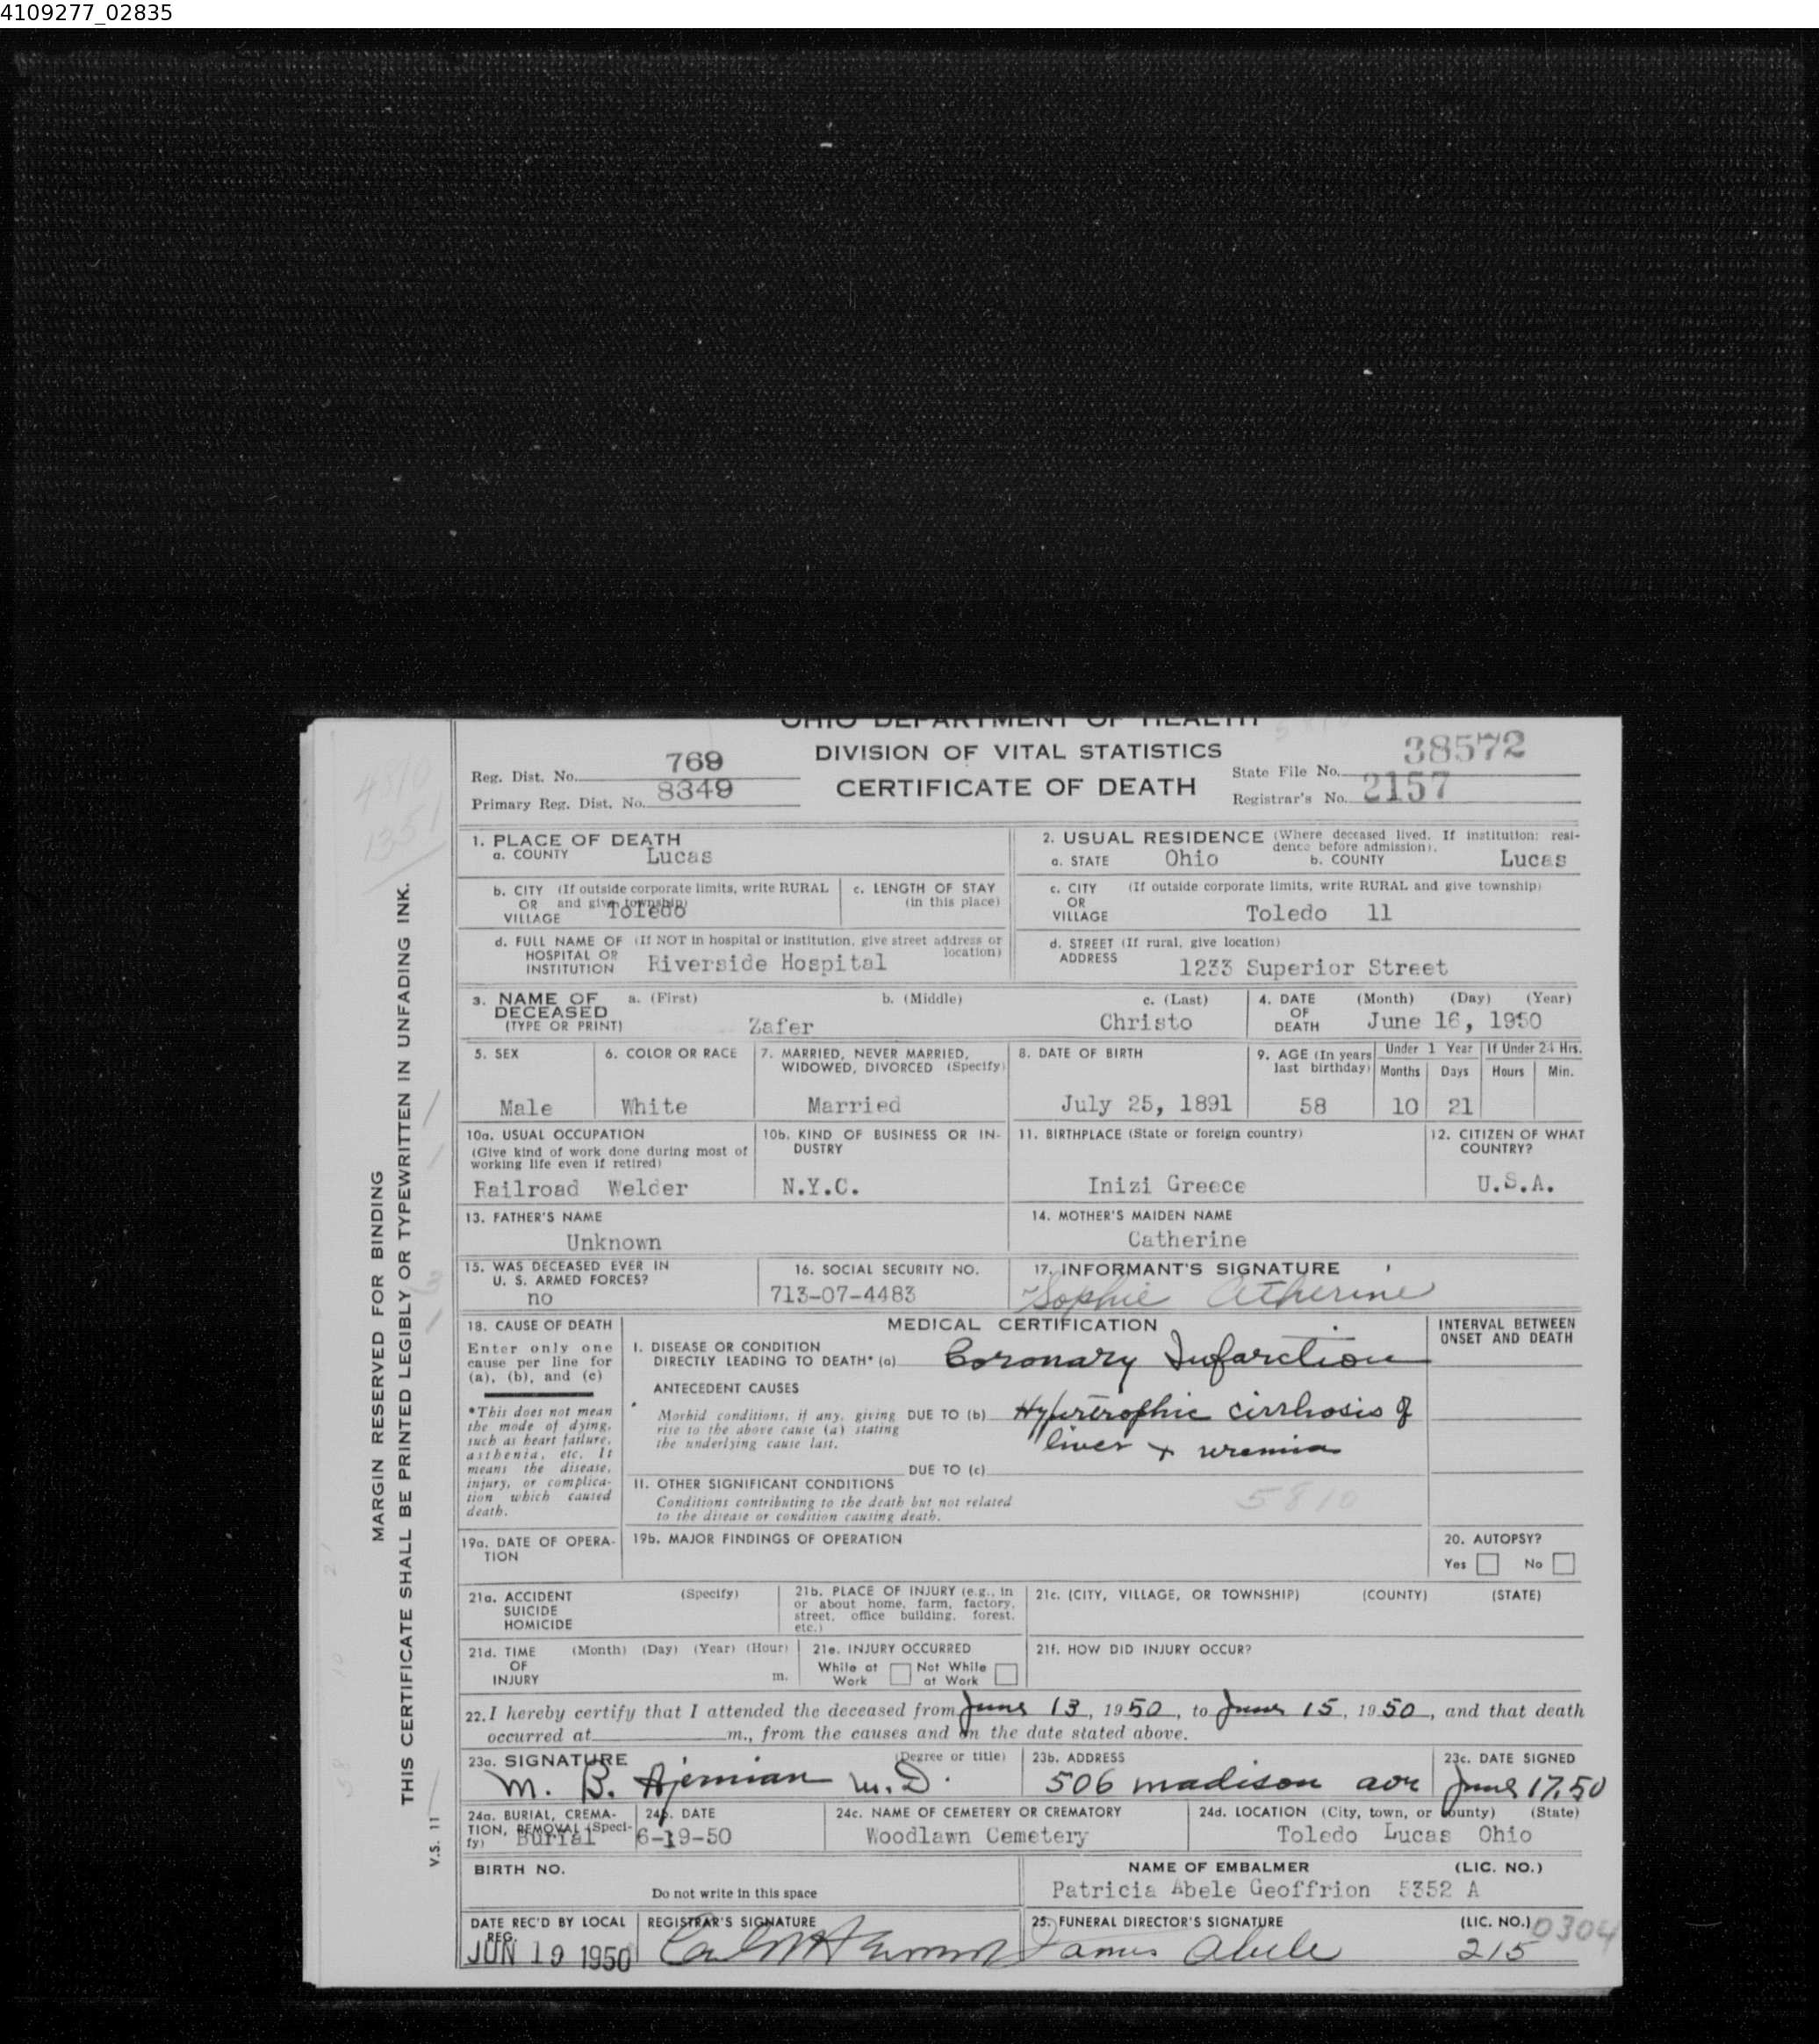 4109277_02835
OHIO DEPARTMENT OF HEALTH
DIVISION OF VITAL STATISTICS
CERTIFICATE OF DEATH
Reg. Dist. No. 769
Primary Reg. Dist. No. 8349
State File No. 38572
Registrar's No. 2157
MARGIN RESERVED FOR BINDING
THIS CERTIFICATE SHALL BE PRINTED LEGIBLY OR TYPEWRITTEN IN UNFADING INK.
V.S. 11
1. PLACE OF DEATH
a. COUNTY Lucas
2. USUAL RESIDENCE (Where deceased lived. If institution: resi-
dence before admission).
a. STATE Ohio b. COUNTY Lucas
b. CITY (If outside corporate limits, write RURAL
OR and give township)
VILLAGE Toledo
c. LENGTH OF STAY
(in this place)
c. CITY (If outside corporate limits, write RURAL and give township)
OR
VILLAGE Toledo 11
d. FULL NAME OF (If NOT in hospital or institution, give street address or
HOSPITAL OR location)
INSTITUTION Riverside Hospital
d. STREET (If rural, give location)
ADDRESS 1233 Superior Street
3. NAME OF a. (First) b. (Middle) c. (Last)
DECEASED
(TYPE OR PRINT) Zafer Christo
4. DATE (Month) (Day) (Year)
OF
DEATH June 16, 1950
5. SEX
Male
6. COLOR OR RACE
White
7. MARRIED, NEVER MARRIED,
WIDOWED, DIVORCED (Specify)
Married
8. DATE OF BIRTH
July 25, 1891
9. AGE (In years
last birthday)
58
Under 1 Year If Under 24 Hrs.
Months Days Hours Min.
10 21
10a. USUAL OCCUPATION
(Give kind of work done during most of
working life even if retired)
Railroad Welder
10b. KIND OF BUSINESS OR IN-
DUSTRY
N.Y.C.
11. BIRTHPLACE (State or foreign country)
Inizi Greece
12. CITIZEN OF WHAT
COUNTRY?
U.S.A.
13. FATHER'S NAME
Unknown
14. MOTHER'S MAIDEN NAME
Catherine
15. WAS DECEASED EVER IN
U. S. ARMED FORCES?
no
16. SOCIAL SECURITY NO.
713-07-4483
17. INFORMANT'S SIGNATURE
Sophie Catherine
18. CAUSE OF DEATH
Enter only one
cause per line for
(a), (b), and (c)
*This does not mean
the mode of dying,
such as heart failure,
asthenia, etc. It
means the disease,
injury, or complica-
tion which caused
death.
MEDICAL CERTIFICATION
INTERVAL BETWEEN
ONSET AND DEATH
I. DISEASE OR CONDITION
DIRECTLY LEADING TO DEATH* (a) Coronary Infarction
ANTECEDENT CAUSES
Morbid conditions, if any, giving DUE TO (b) Hypertrophic cirrhosis of
rise to the above cause (a) stating
the underlying cause last. liver + uremia
DUE TO (c)
II. OTHER SIGNIFICANT CONDITIONS
Conditions contributing to the death but not related
to the disease or condition causing death.
5810
19a. DATE OF OPERA-
TION
19b. MAJOR FINDINGS OF OPERATION
20. AUTOPSY?
Yes No
21a. ACCIDENT (Specify)
SUICIDE
HOMICIDE
21b. PLACE OF INJURY (e.g., in
or about home, farm, factory,
street, office building, forest,
etc.)
21c. (CITY, VILLAGE, OR TOWNSHIP) (COUNTY) (STATE)
21d. TIME (Month) (Day) (Year) (Hour)
OF
INJURY m.
21e. INJURY OCCURRED
While at Work Not While at Work
21f. HOW DID INJURY OCCUR?
22. I hereby certify that I attended the deceased from June 13, 1950, to June 15, 1950, and that death
occurred at m., from the causes and on the date stated above.
23a. SIGNATURE (Degree or title)
M. B. Ajemian M.D.
23b. ADDRESS
506 Madison ave
23c. DATE SIGNED
June 17, 50
24a. BURIAL, CREMA-
TION, REMOVAL (Speci-
fy) Burial
24b. DATE
6-19-50
24c. NAME OF CEMETERY OR CREMATORY
Woodlawn Cemetery
24d. LOCATION (City, town, or county) (State)
Toledo Lucas Ohio
BIRTH NO.
Do not write in this space
NAME OF EMBALMER (LIC. NO.)
Patricia Abele Geoffrion 5352 A
DATE REC'D BY LOCAL
REG.
JUN 19 1950
REGISTRAR'S SIGNATURE
25. FUNERAL DIRECTOR'S SIGNATURE (LIC. NO.) 0304
James Abele 215